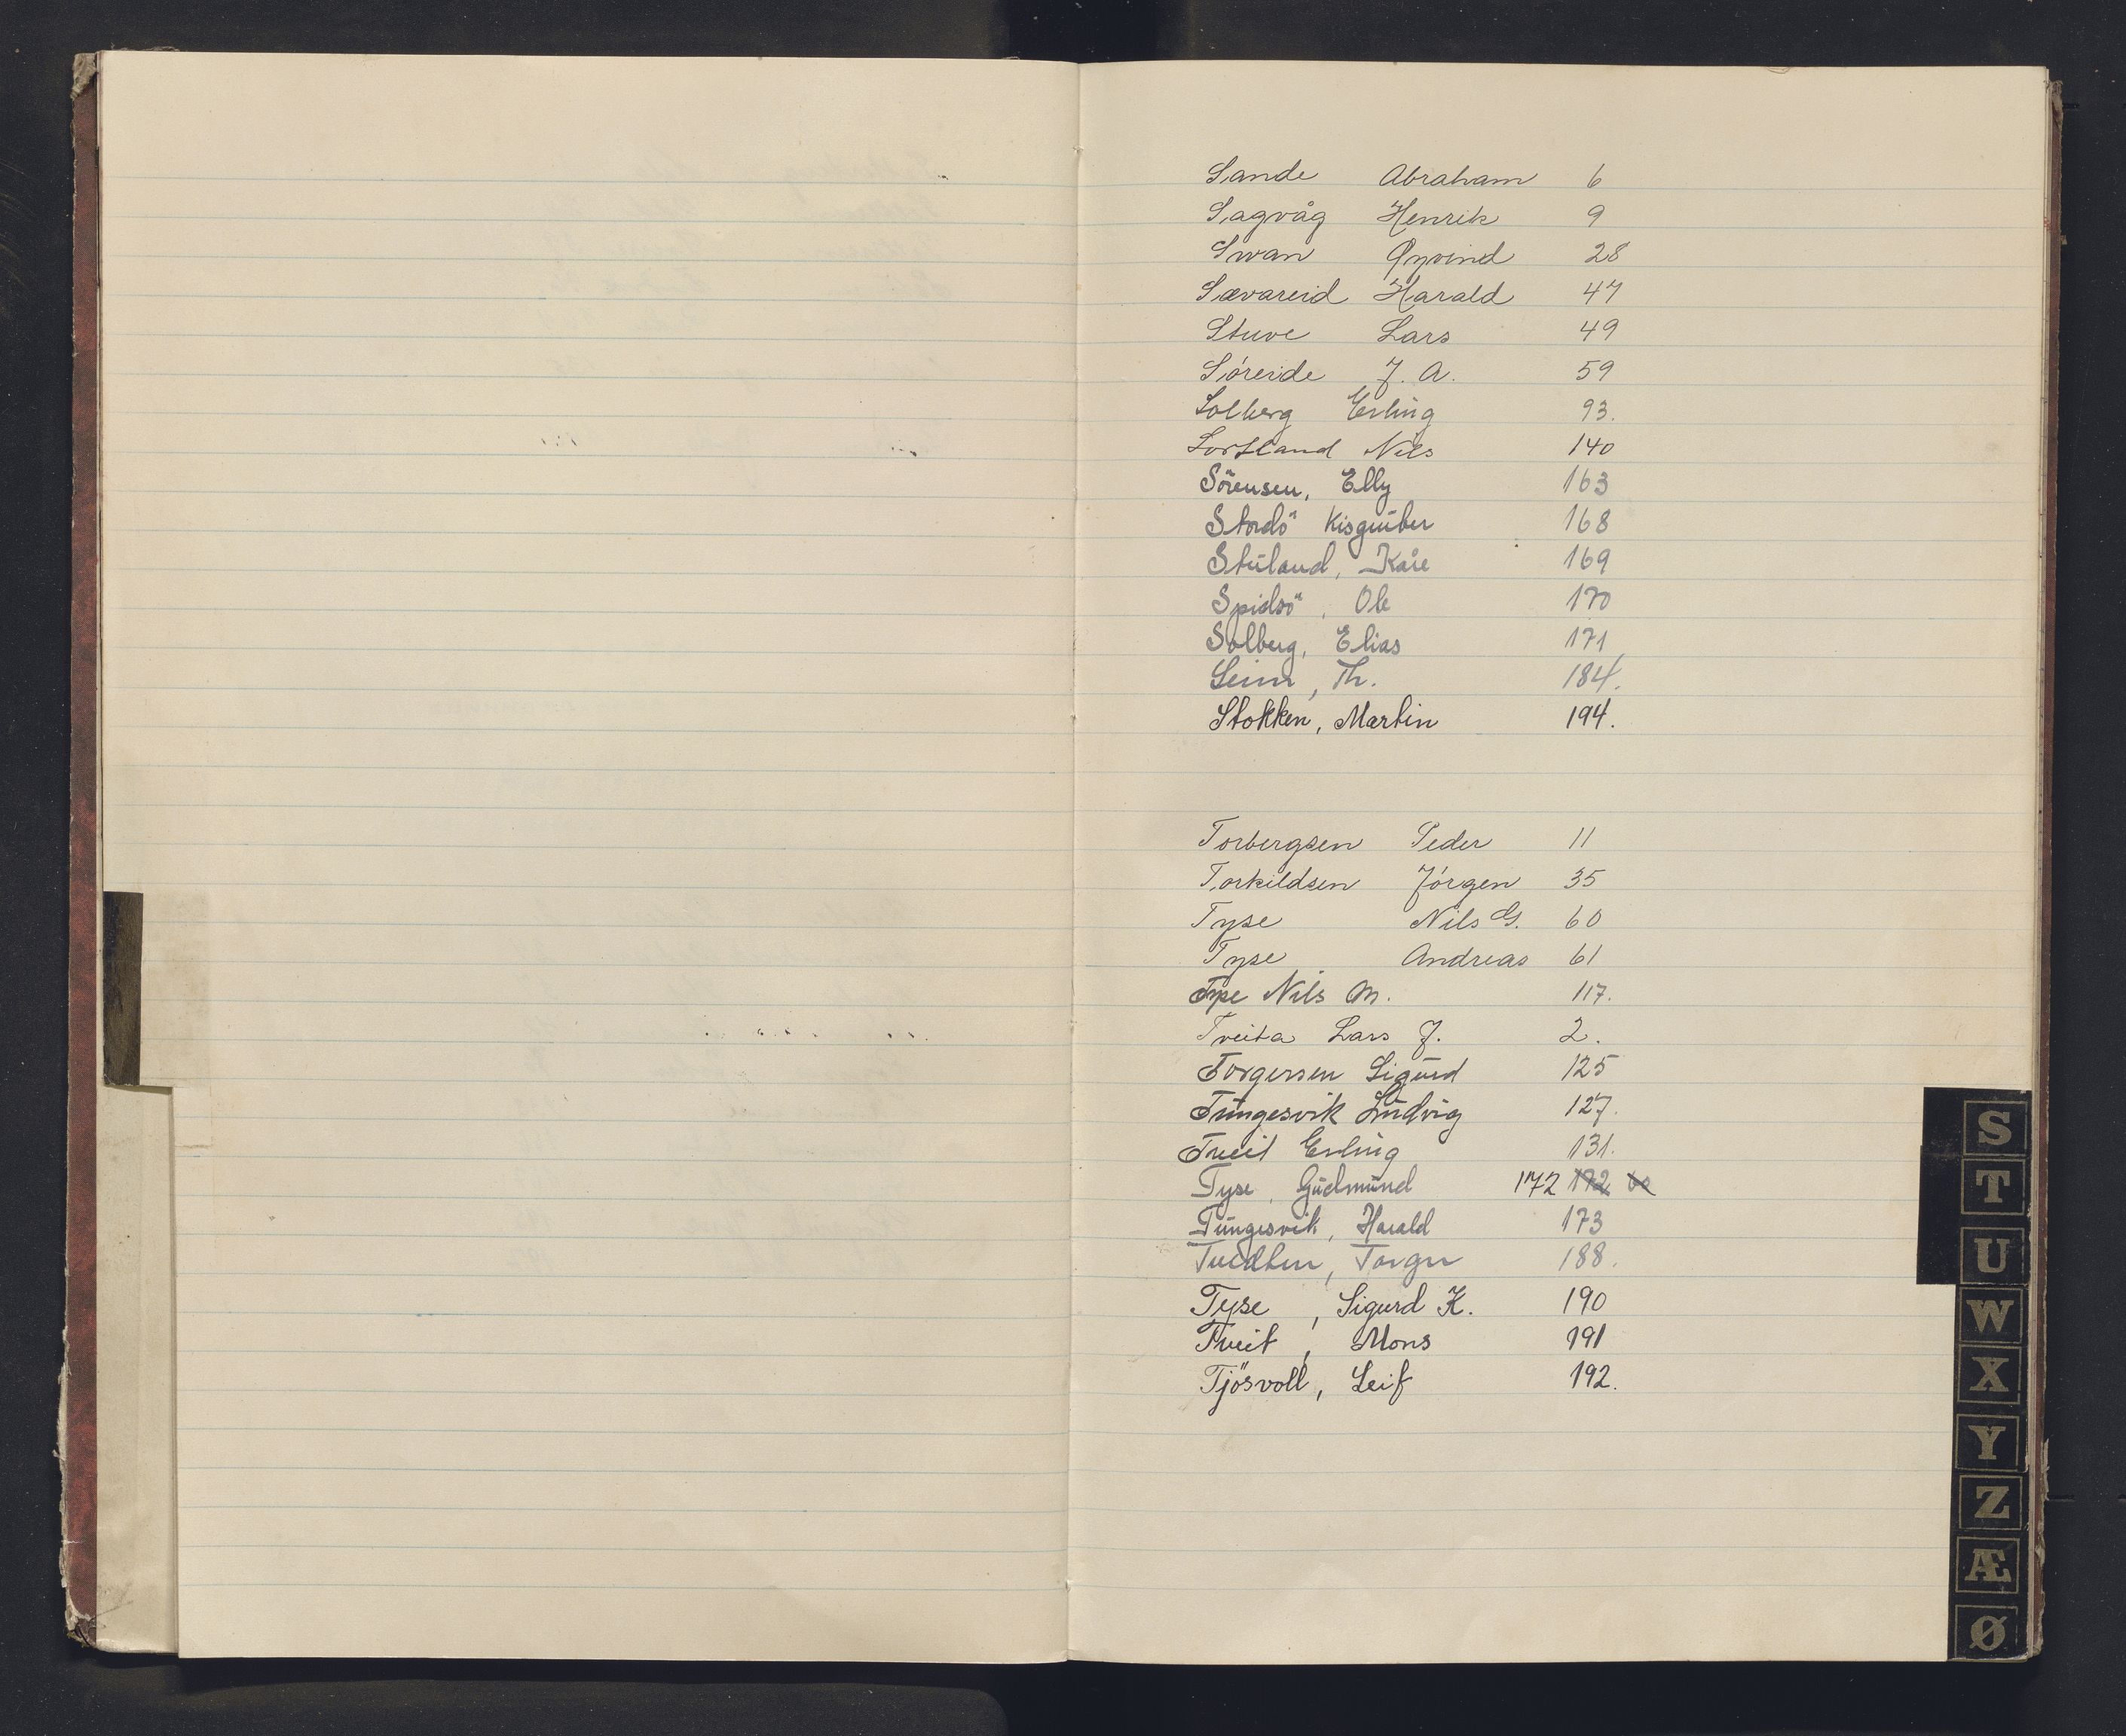 Sande Abraham 6
Sagvåg Henrik 9
Swan Øyvind 28
Sævareid Harald 47
Stuve Lars 49
Söreide J. A. 59
Solberg Erling 93.
Sortland Nils 140
Sörensen, Elly 163
Stordö Kisgruber 168
Stuland, Kåre 169
Spidsö, Ole 170
Solberg, Elias 171
Seim, Th. 184.
Stokken, Martin 194.
Torbergsen Peder 11
Torkildsen Jörgen 35
Tyse Nils G. 60
Tyse Andreas 61
Tyse Nils M. 117.
Tveita Lars J. 2.
Torgersen Sigurd 125
Tungesvik Ludvig 127.
Tveit Erling 131.
Tyse, Gudmund 172 172
Tungesvik, Harald 173
Torger 188.
Tyse, Sigurd K. 190
Tveit, Mons 191
Tjösvoll, Leif 192.
S
T
U
W
X
Y
Z
Æ
Ø